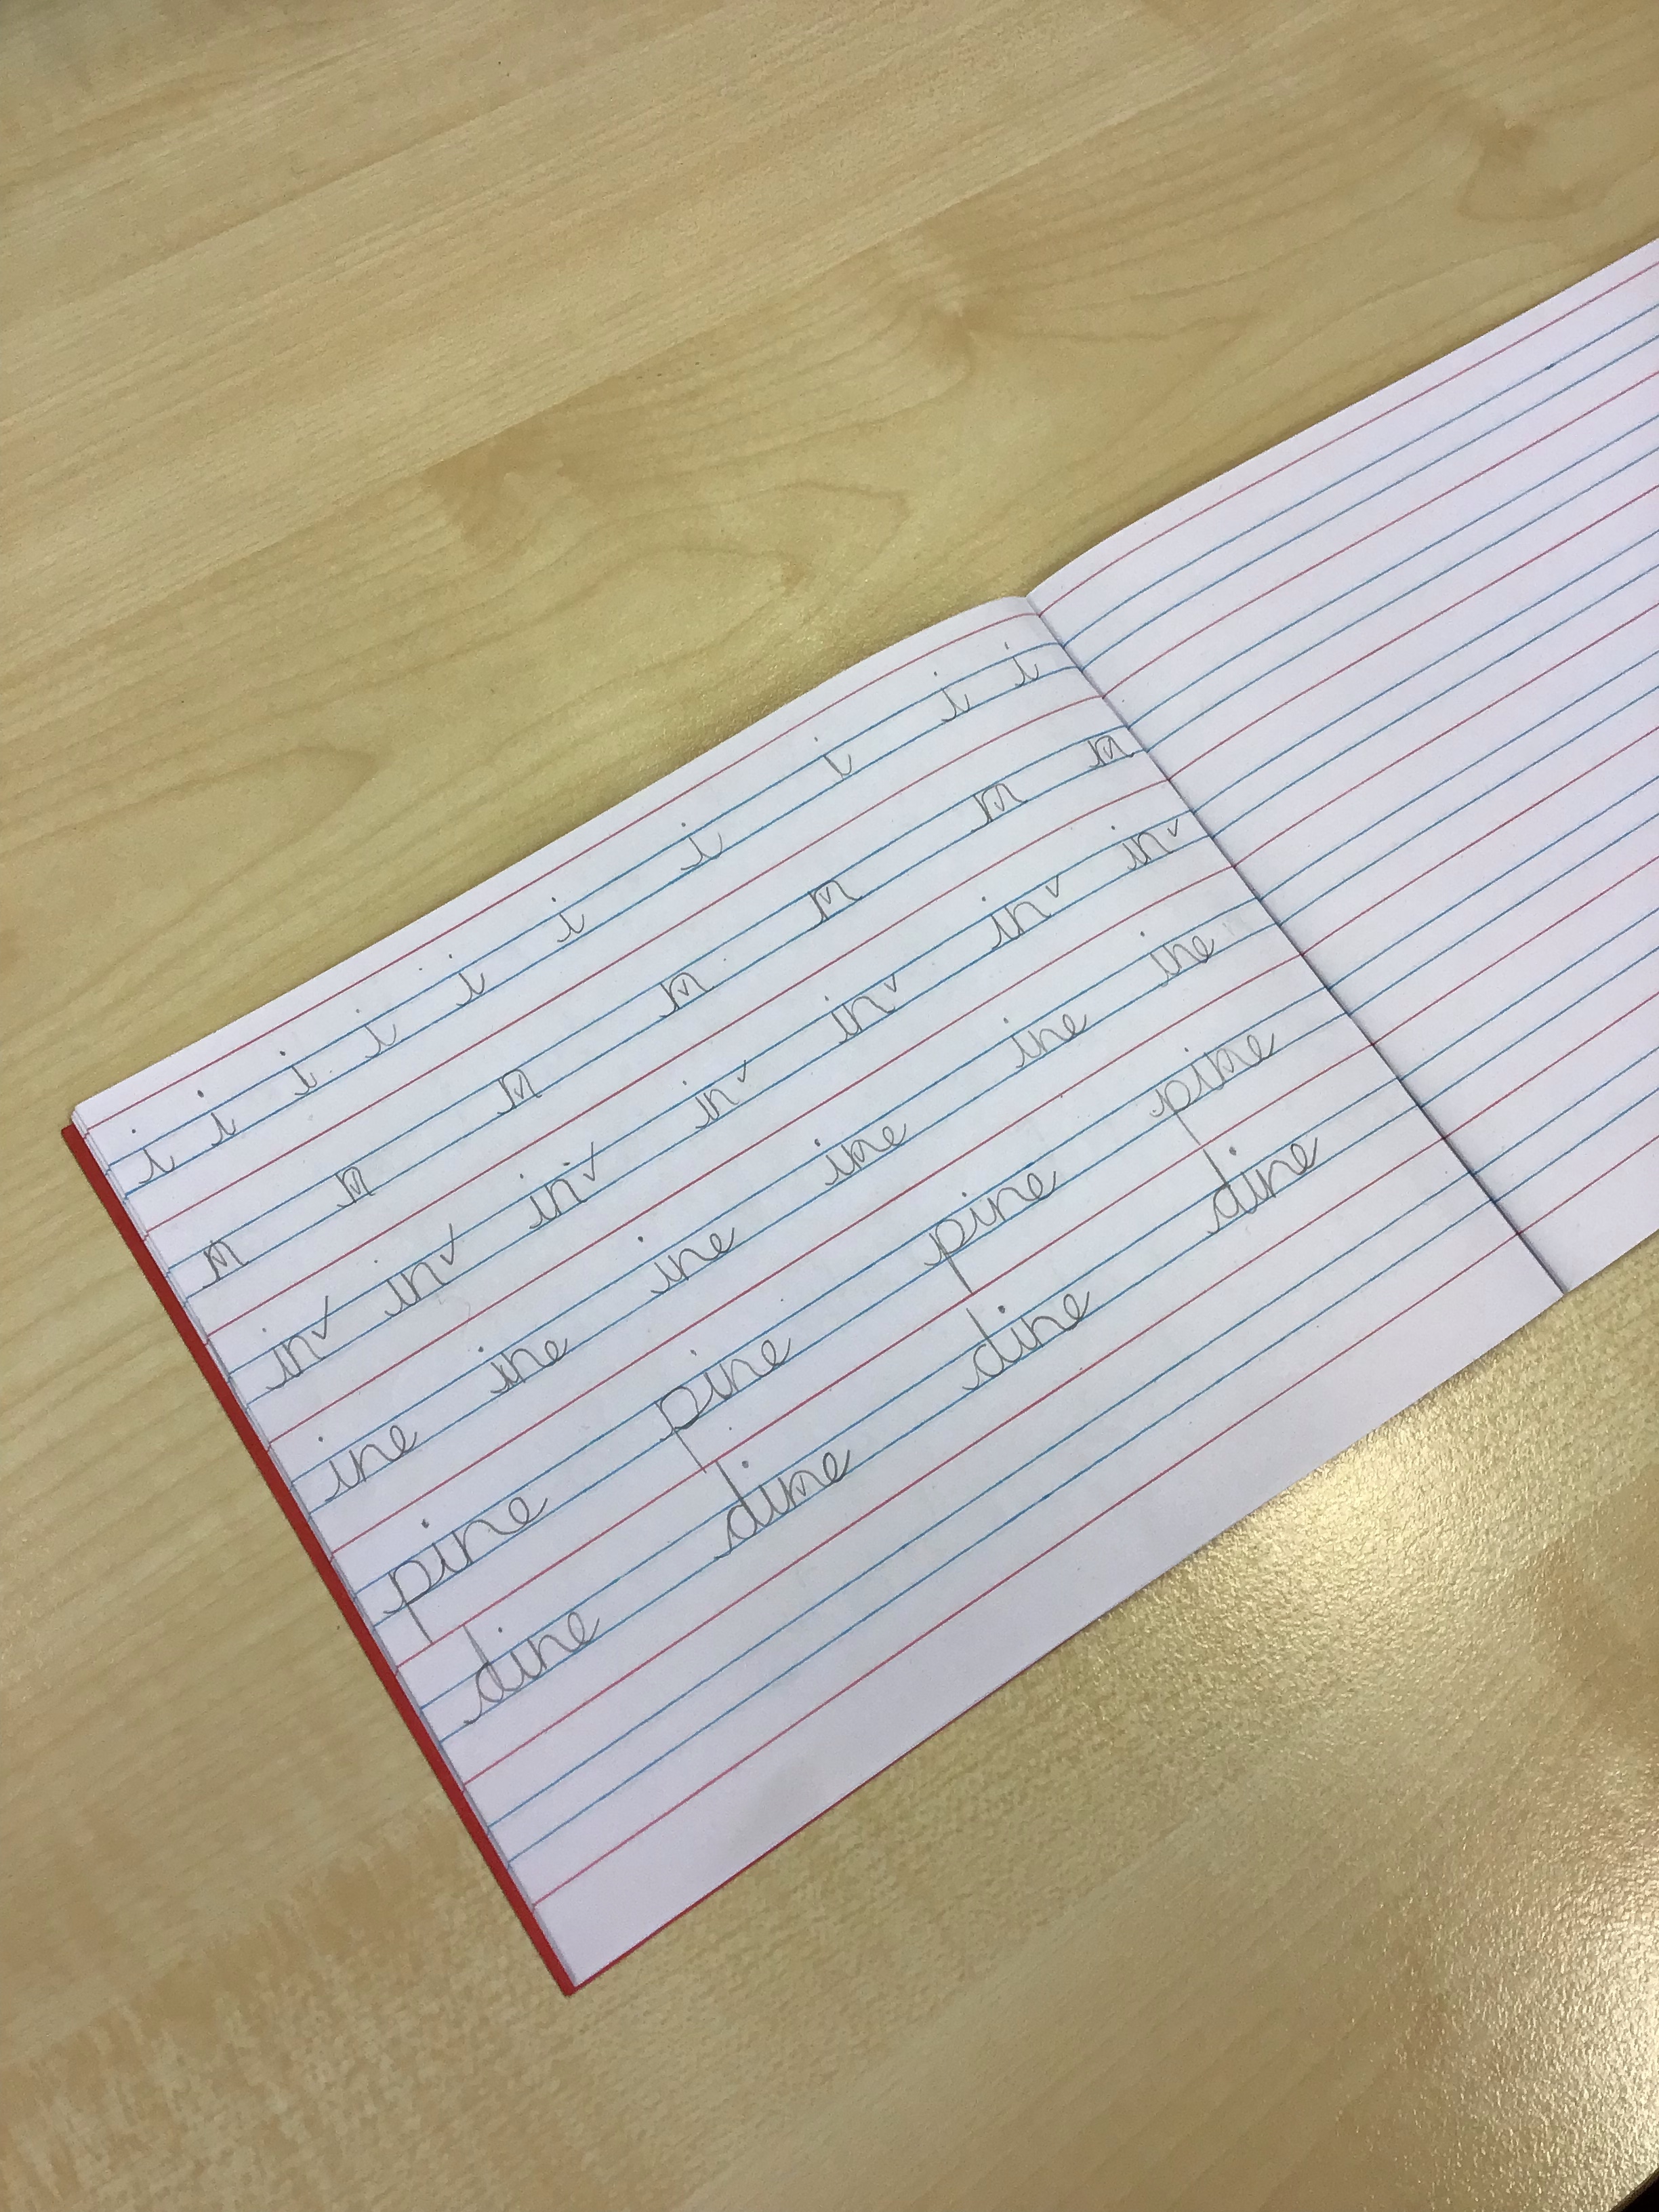 i i i i i i i i i i
n n n n n n n
in✓ in✓ in✓ in✓ in✓ in✓ in✓
ine ine ine ine ine ine
pine pine pine pine
dine dine dine dine